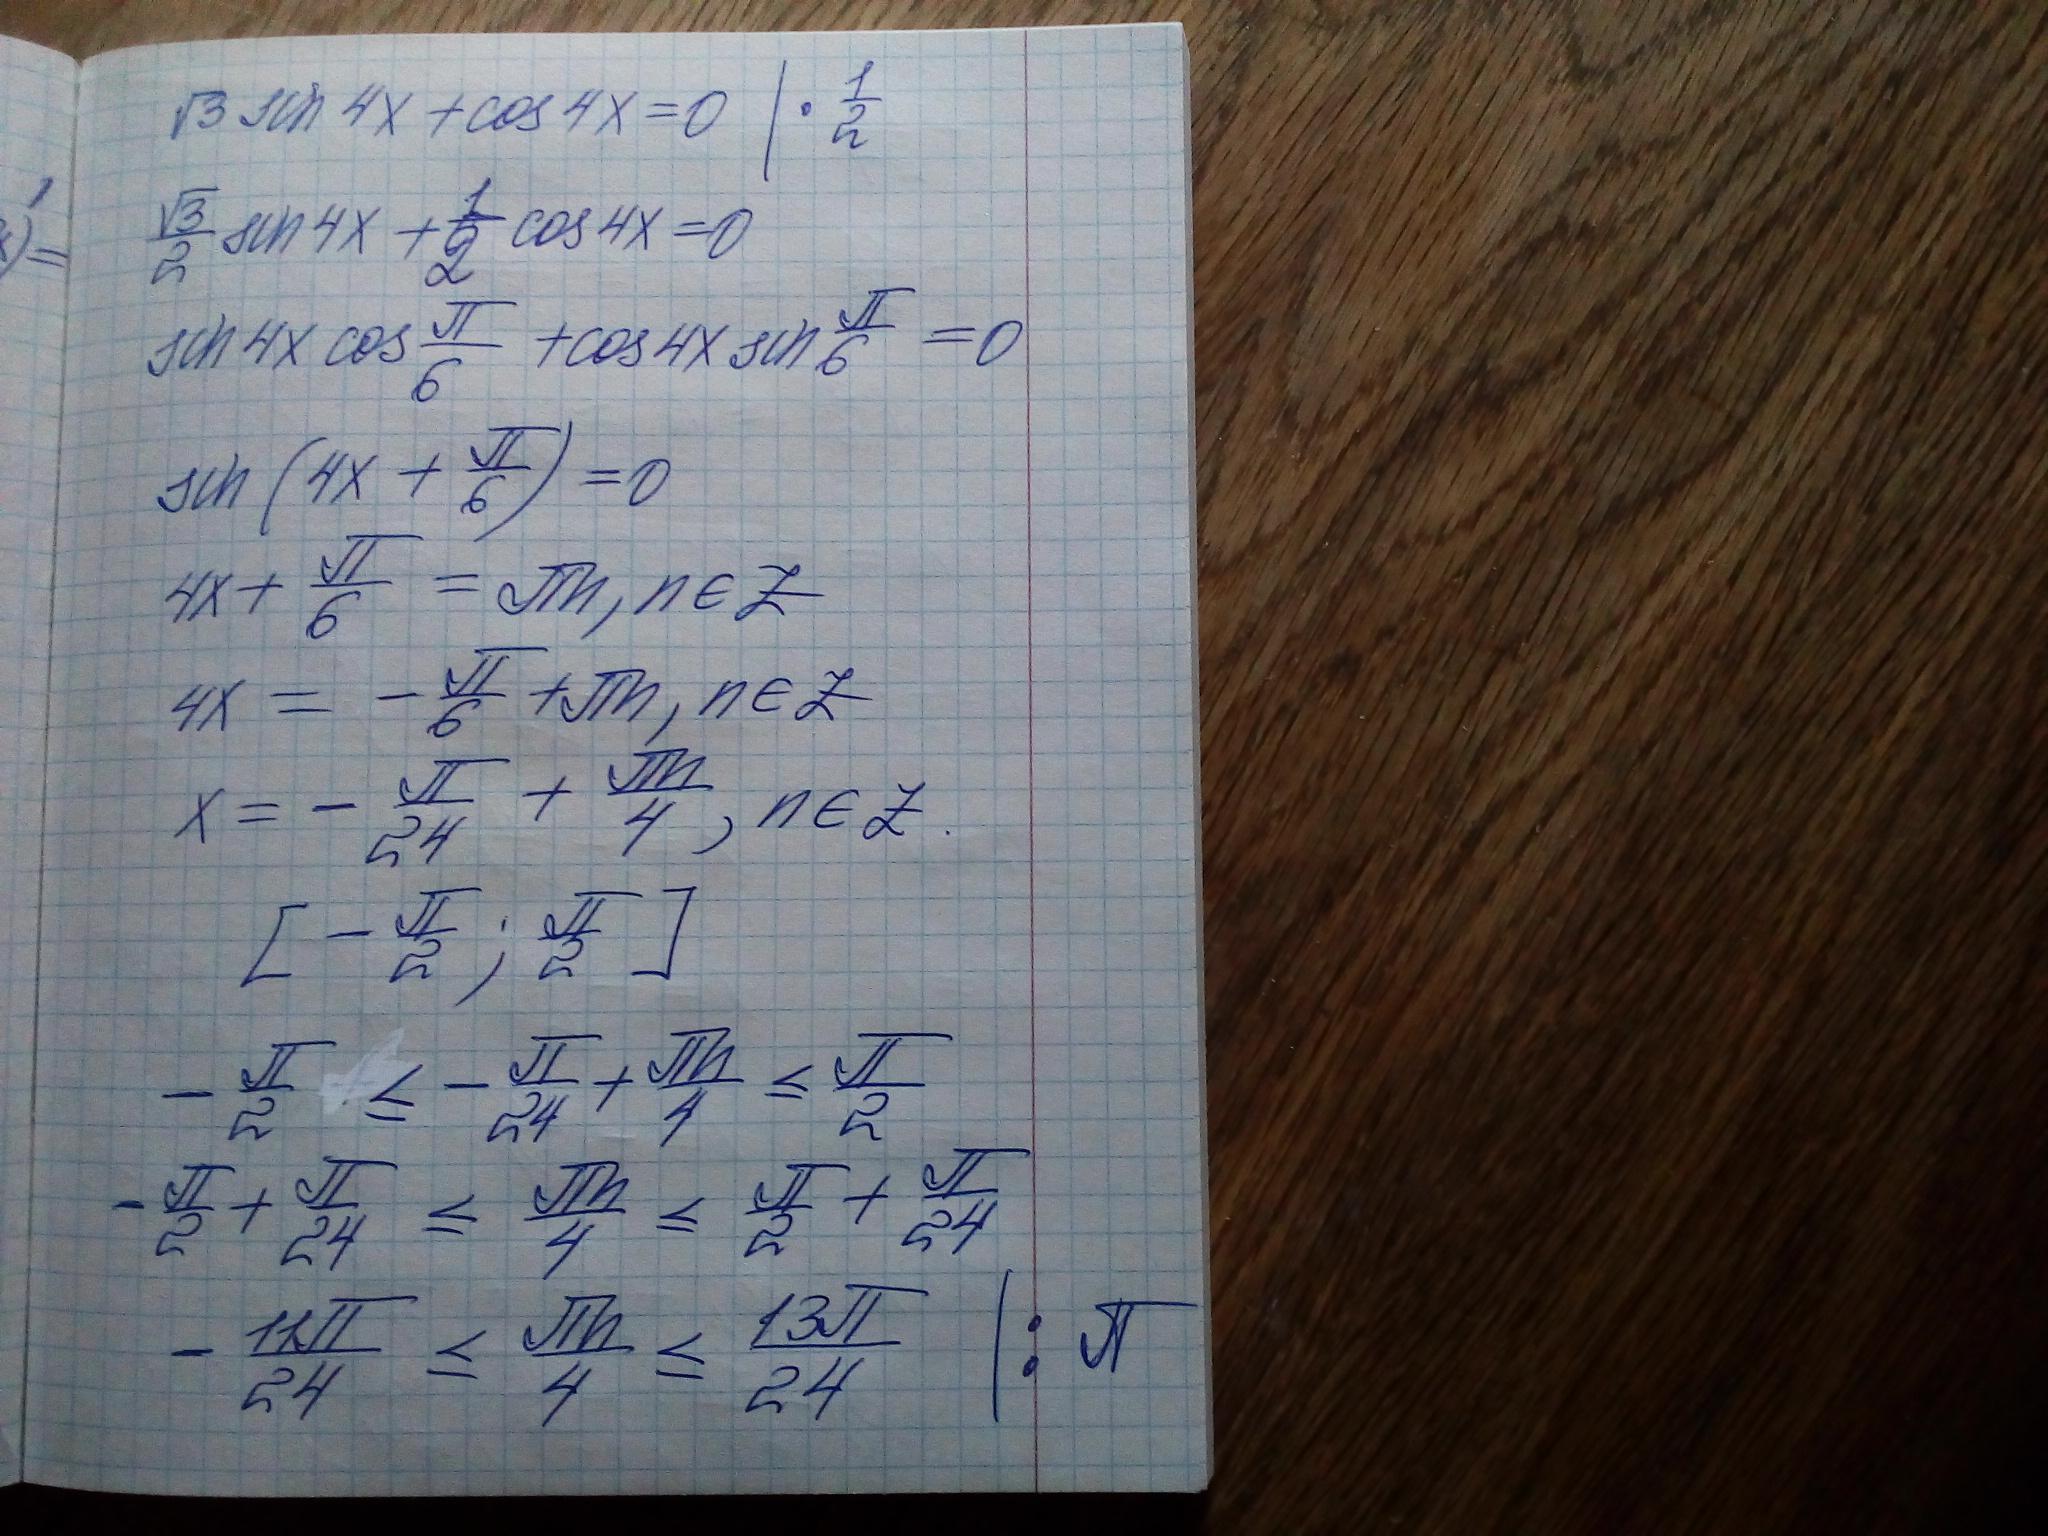 √3 sin 4x + cos 4x = 0 | · 1/2
√3/2 sin 4x + 1/2 cos 4x = 0
sin 4x cos π/6 + cos 4x sin π/6 = 0
sin (4x + π/6) = 0
4x + π/6 = πn, n ∈ Z
4x = - π/6 + πn, n ∈ Z
x = - π/24 + πn/4, n ∈ Z.
[- π/2 ; π/2]
- π/2 ≤ - π/24 + πn/4 ≤ π/2
- π/2 + π/24 ≤ πn/4 ≤ π/2 + π/24
- 11π/24 ≤ πn/4 ≤ 13π/24 | : π